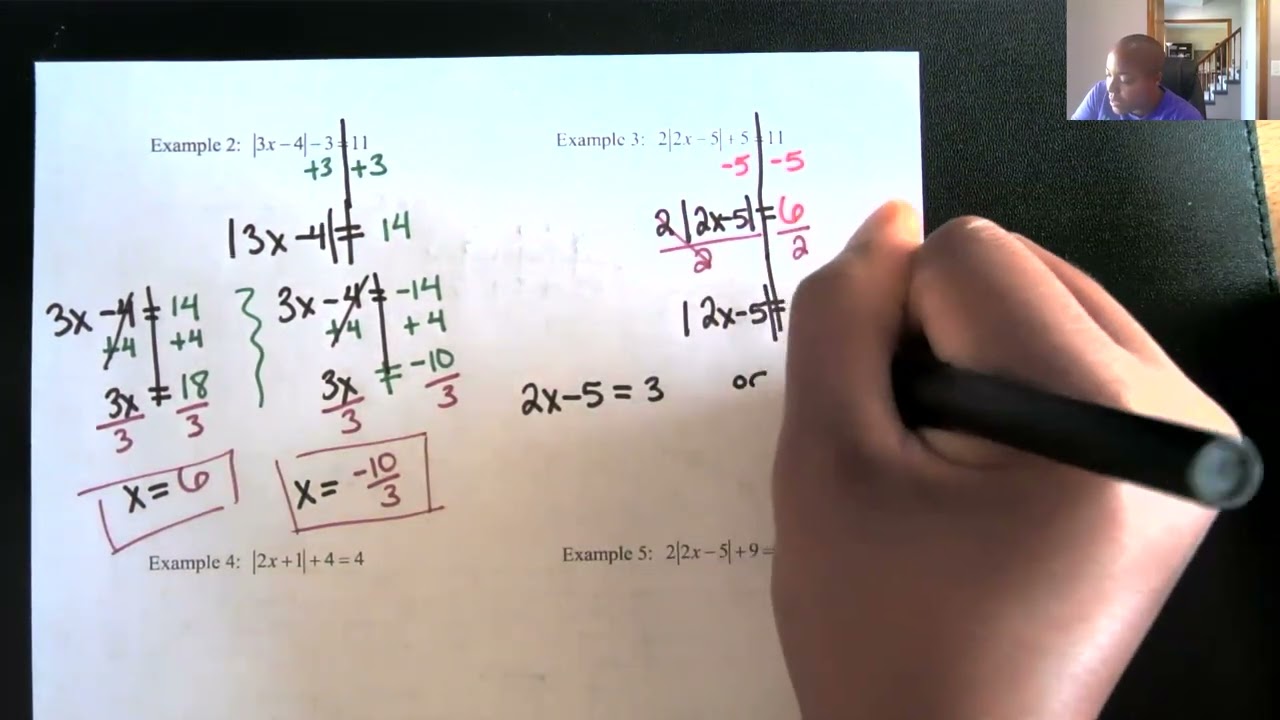 Example 2: |3x−4|−3=11
+3 +3
|3x −4| = 14
3x −4 = 14
+4 +4
3x = 18
3 3
x = 6
3x −4 = −14
+4 +4
3x = −10
3 3
x = −10
3
Example 3: 2|2x−5|+5=11
−5 −5
2 |2x−5| = 6
2 2
|2x−5| =
2x−5 = 3 or
Example 4: |2x+1|+4=4
Example 5: 2|2x−5|+9=